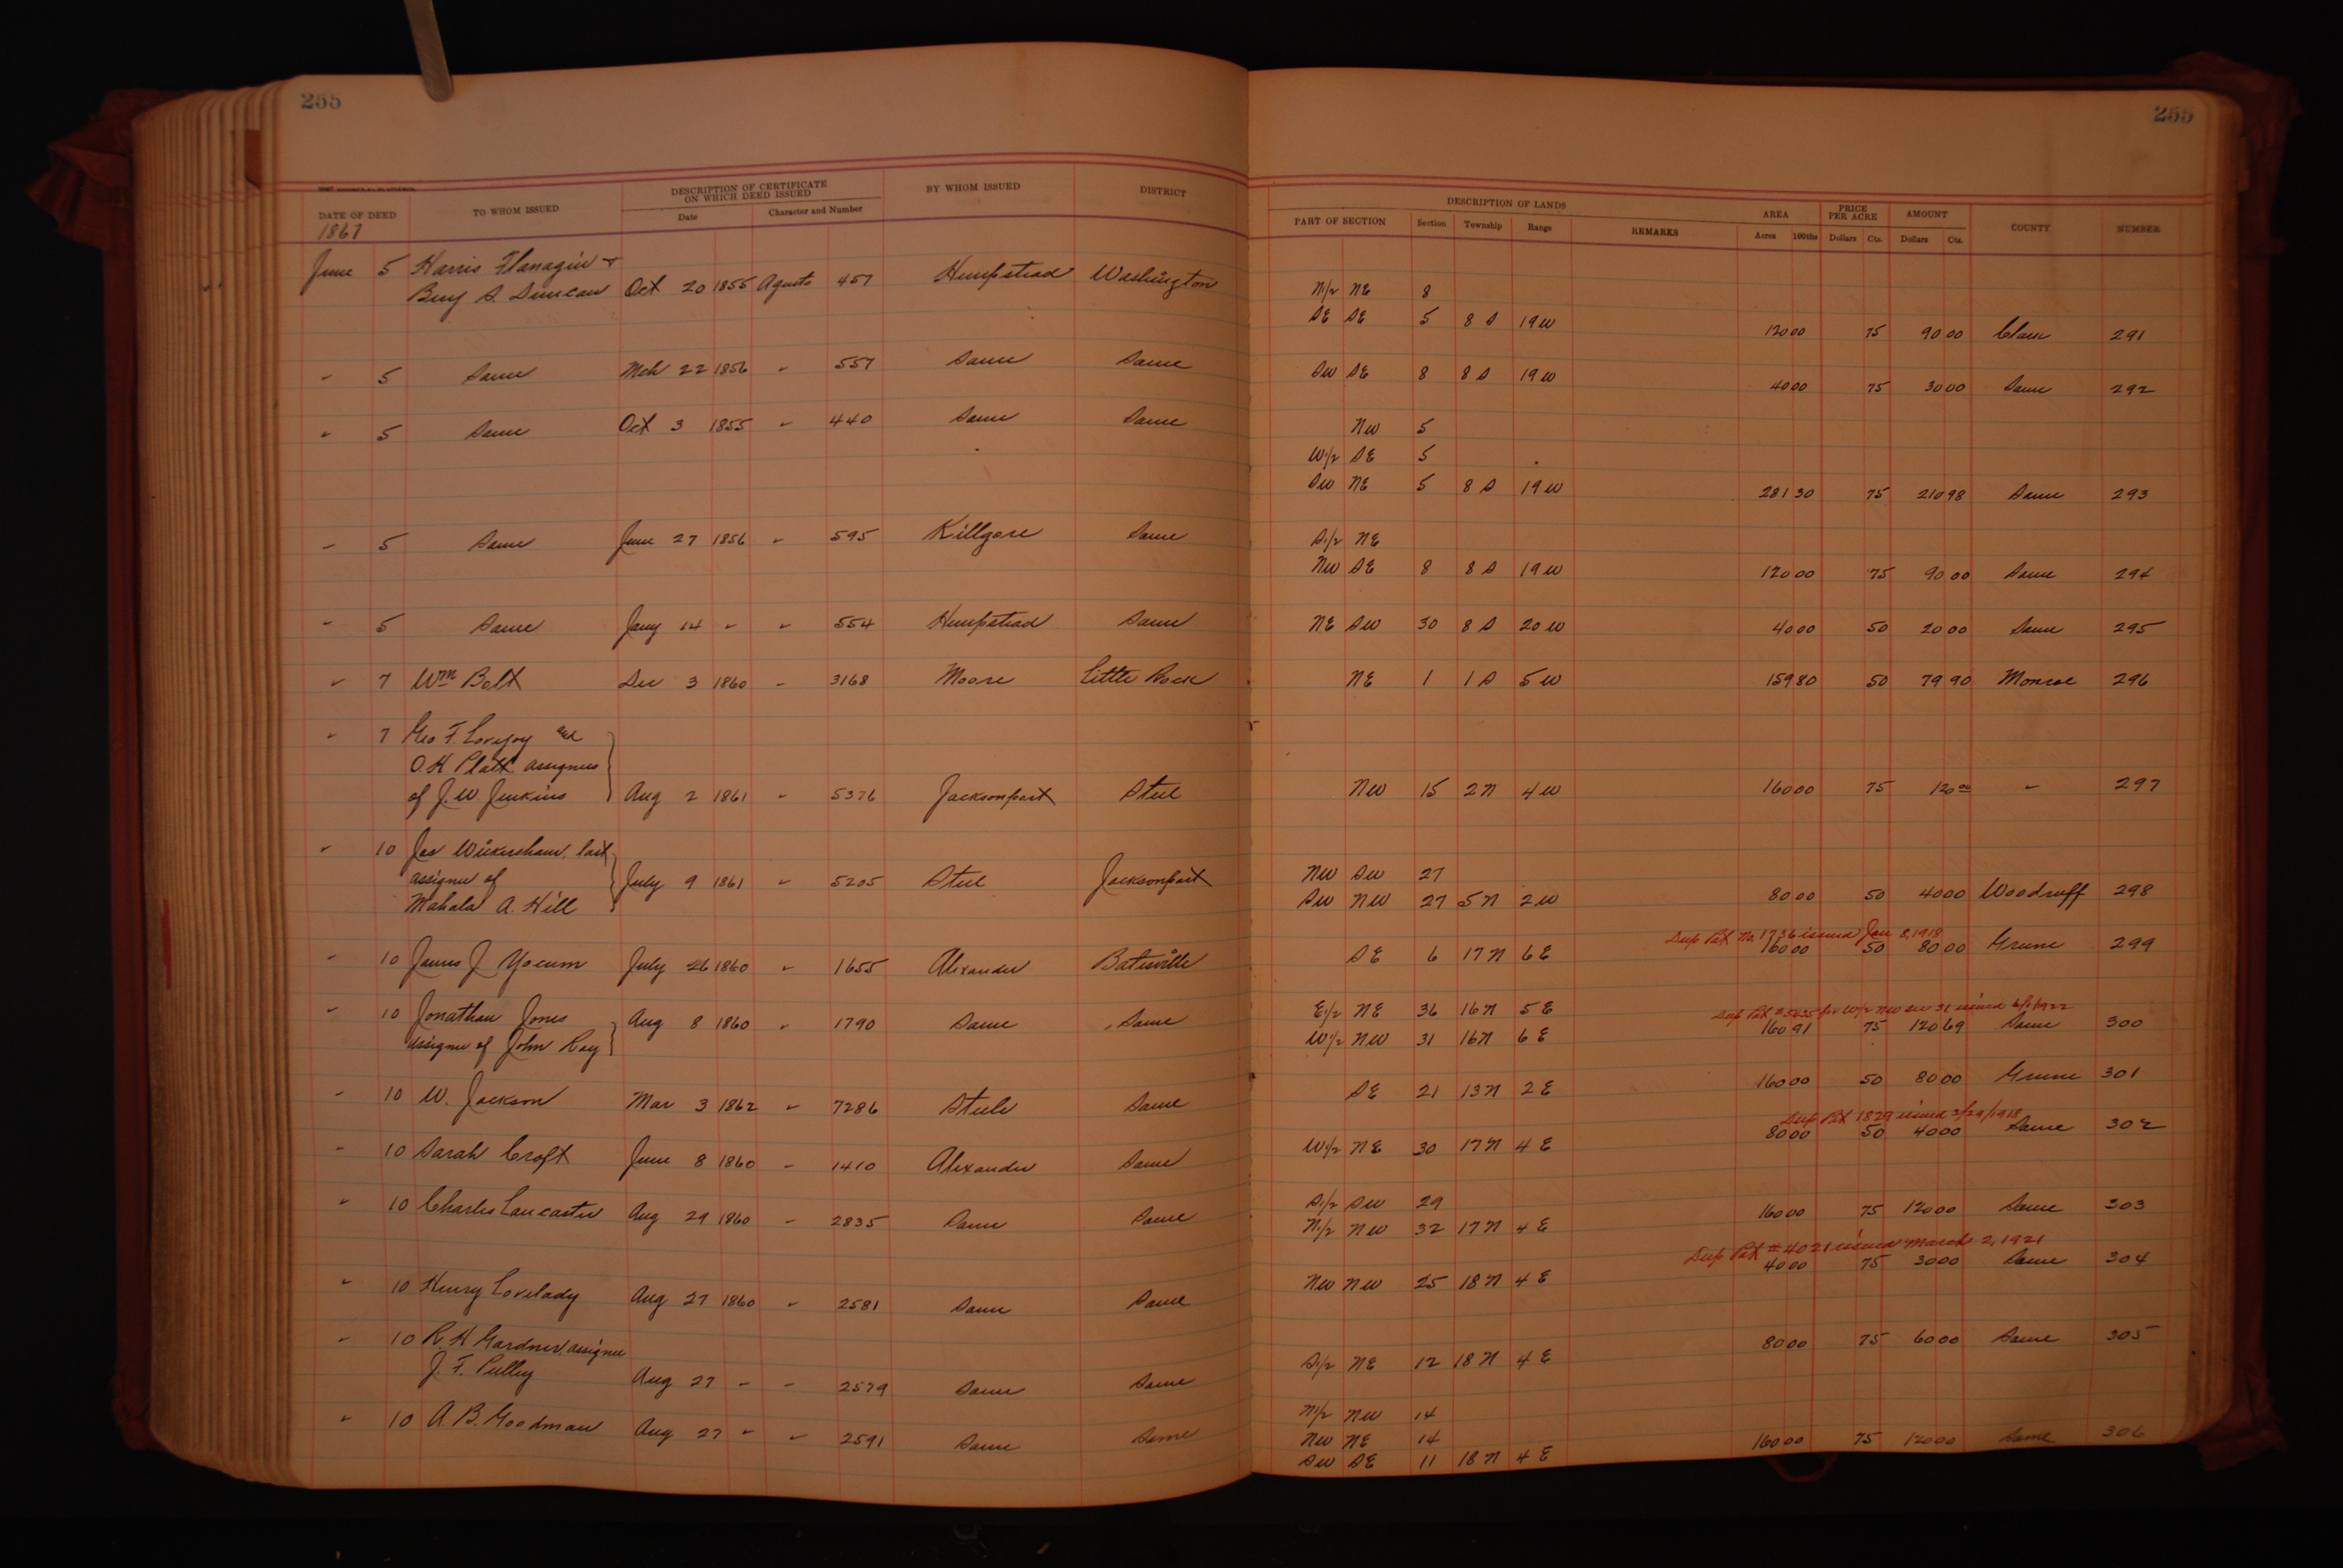 255 255
DATE OF DEED TO WHOM ISSUED DESCRIPTION OF CERTIFICATE ON WHICH DEED ISSUED BY WHOM ISSUED DISTRICT DESCRIPTION OF LANDS AREA PRICE PER ACRE AMOUNT COUNTY NUMBER
Date Character and Number PART OF SECTION Section Township Range REMARKS Acres 100ths Dollars Cts. Dollars Cts.
1867
June 5 Harris Flanagin +
Benj S. Duncan Oct 20 1855 Agusto 457 Hempstead Washington N1/2 NE 8
SE SE 5 8 S 19 W 120 00 75 90 00 Clark 291
" 5 Same Mch 22 1856 " 557 Same Same SW SE 8 8 S 19 W 40 00 75 30 00 Same 292
" 5 Same Oct 3 1855 " 440 Same Same NW 5
W1/2 SE 5
SW NE 5 8 S 19 W 281 30 75 210 98 Same 293
" 5 Same June 27 1856 " 595 Killgore Same S1/2 NE
NW SE 8 8 S 19 W 120 00 75 90 00 Same 294
" 5 Same Jany 14 " " 554 Hempstead Same NE SW 30 8 S 20 W 40 00 50 20 00 Same 295
" 7 Wm Bolt Dec 3 1860 " 3168 Moore Little Rock NE 1 1 S 5 W 159 80 50 79 90 Monroe 296
" 7 Geo F. Lovejoy and
O. H Platt assignees
of J. W. Jenkins Aug 2 1861 " 5376 Jacksonport Steel NW 15 2 N 4 W 160 00 75 120 00 " 297
" 10 Jas Wickersham, last
assignee of July 9 1861 " 5205 Steel Jacksonport NW SW 27
Mahala A. Hill SW NW 27 5 N 2 W 80 00 50 40 00 Woodruff 298
Dup Pat No. 1736 issued Jan 8, 1918
" 10 James J Yocum July 26 1860 " 1655 Alexander Batesville SE 6 17 N 6 E 160 00 50 80 00 Greene 299
Dup Pat # 5635 for W1/2 NW sec 31 issued 6/1/1922
" 10 Jonathan Jones Aug 8 1860 " 1790 Same Same E1/2 NE 36 16 N 5 E
assignee of John Ray W1/2 NW 31 16 N 6 E 160 91 75 120 69 Same 300
" 10 W. Jackson Mar 3 1862 " 7286 Steele Same SE 21 13 N 2 E 160 00 50 80 00 Greene 301
Dup Pat 1829 issued 3/29/1918
" 10 Sarah Croft June 8 1860 " 1410 Alexander Same W1/2 NE 30 17 N 4 E 80 00 50 40 00 Same 302
" 10 Charles Lancaster Aug 29 1860 " 2835 Same Same S1/2 SW 29
N1/2 NW 32 17 N 4 E 160 00 75 120 00 Same 303
Dup Pat # 4021 issued March 2, 1921
" 10 Henry Lovelady Aug 27 1860 " 2581 Same Same NW NW 25 18 N 4 E 40 00 75 30 00 Same 304
" 10 R. H Gardner, assignee
J. F. Pulley Aug 27 " " 2579 Same Same S1/2 NE 12 18 N 4 E 80 00 75 60 00 Same 305
" 10 A. B. Goodman Aug 27 " " 2591 Same Same N1/2 NW 14
NW NE 14
SW SE 11 18 N 4 E 160 00 75 120 00 Same 306